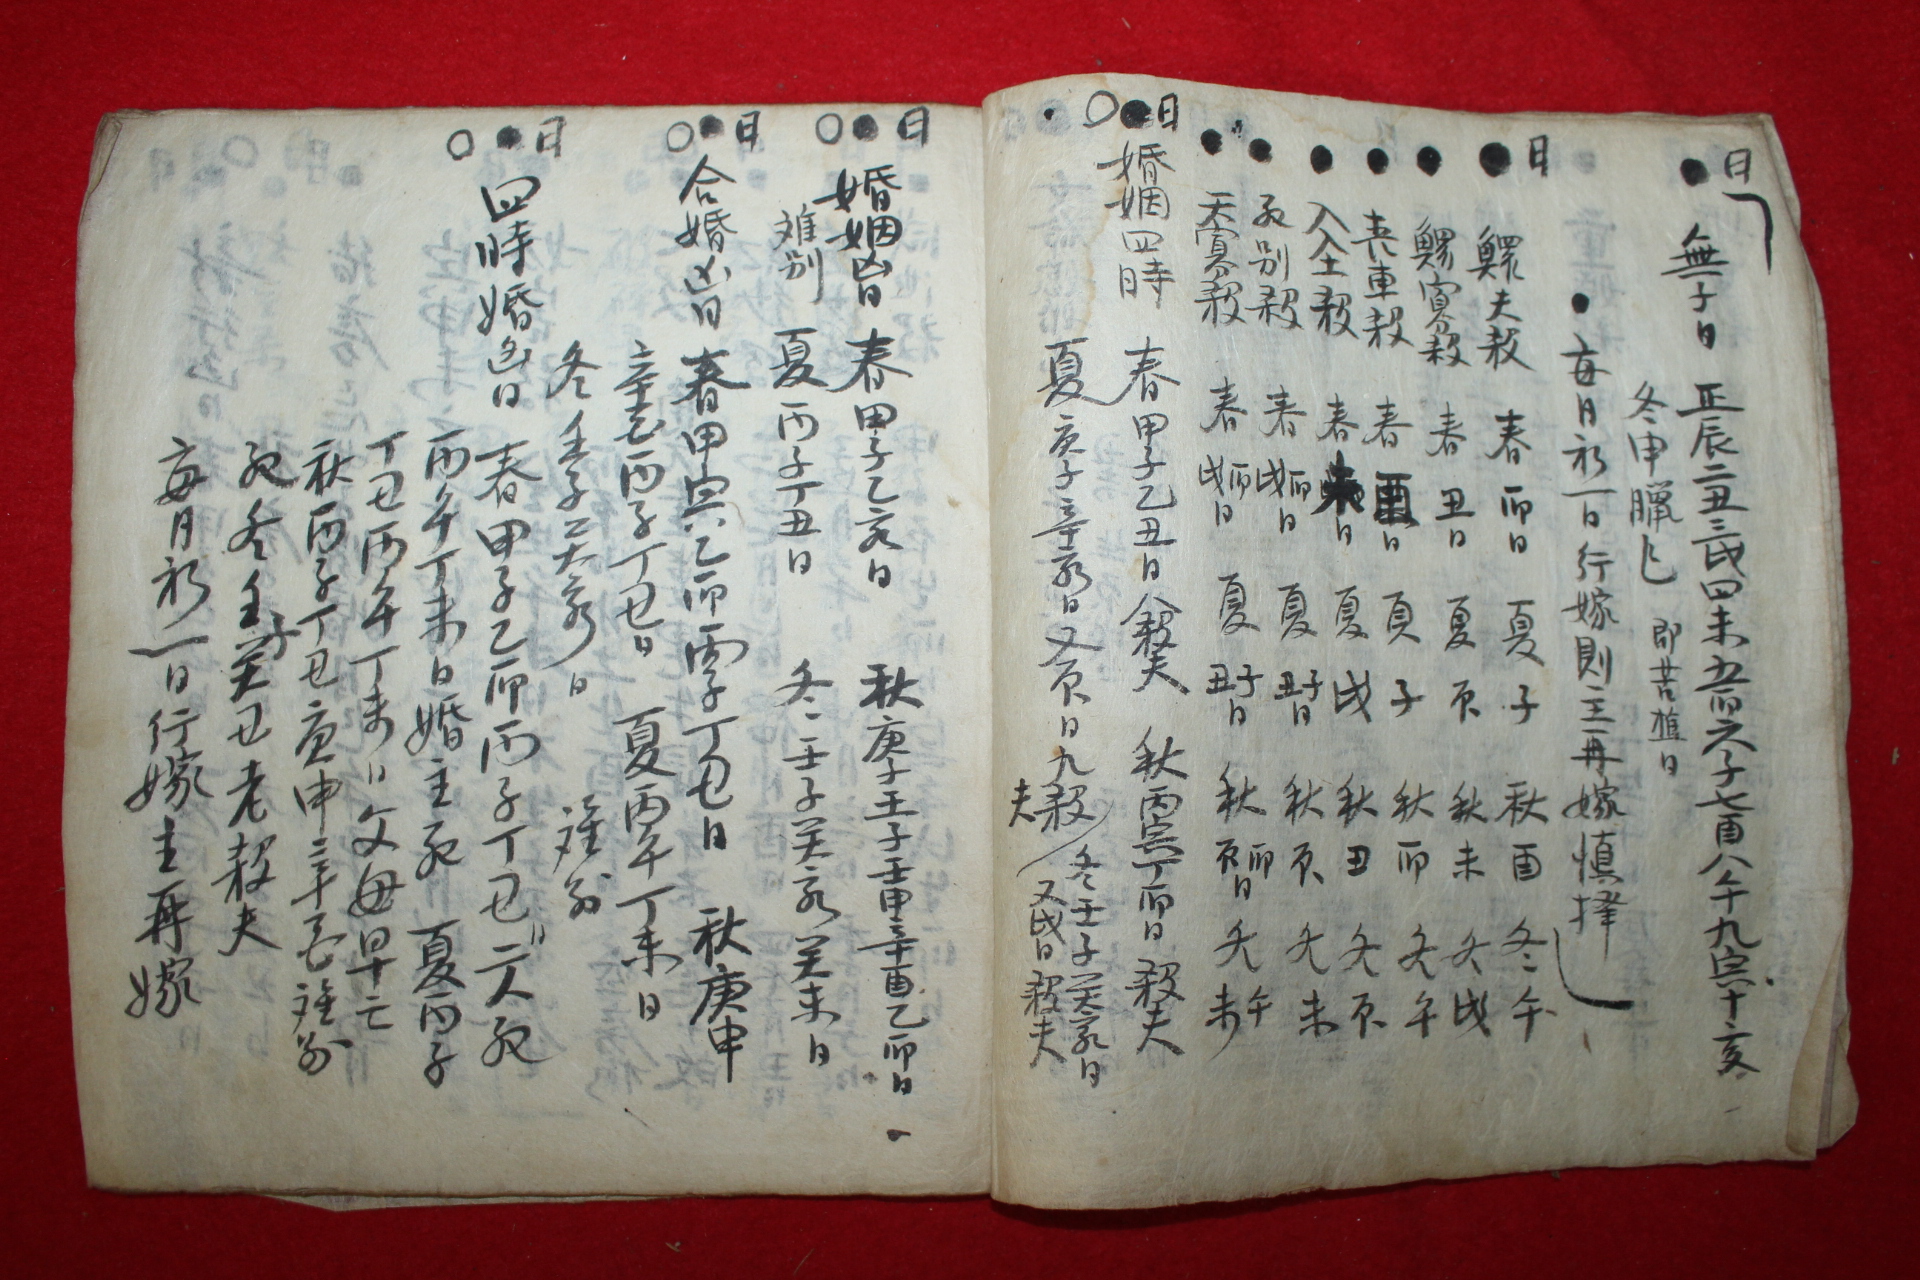 日
無子日 正辰二丑三戌四未五卯六子七酉八午九寅十亥
冬申臘巳 即苦樵日
每月初一日行嫁則主再嫁慎擇
日
鰥夫殺 春卯日 夏子 秋酉 冬午
鰥寡殺 春丑日 夏辰 秋未 冬戌
喪車殺 春酉日 夏子 秋卯 冬午
入土殺 春日 夏戌 秋丑 冬辰
死別殺 春戌卯日 夏丑子日 秋辰 冬未
天寡殺 春戌卯日 夏丑子日 秋辰卯日 冬未午
日
婚姻四時 春甲子乙丑日殺夫 秋丙寅丁卯日殺夫
夏庚子辛亥日又辰日九殺夫 冬壬子癸亥日又戌日殺夫
日
婚姻凶日 春甲子乙亥日 秋庚子壬子壬申辛酉乙卯日
難別 夏丙子丁丑日 冬壬子癸亥癸未日
日
合婚凶日 春甲寅乙卯丙子丁丑日 秋庚申
辛酉丙子丁丑日 夏丙午丁未日
冬壬子癸亥日 難別
日
四時婚凶日 春甲子乙卯丙子丁丑日夫死
丙午丁未日婚主死 夏丙子
丁丑丙午丁未日父母早亡
秋丙子丁丑庚申辛酉難別
死冬壬子癸丑老殺夫
每月初一日行嫁主再嫁